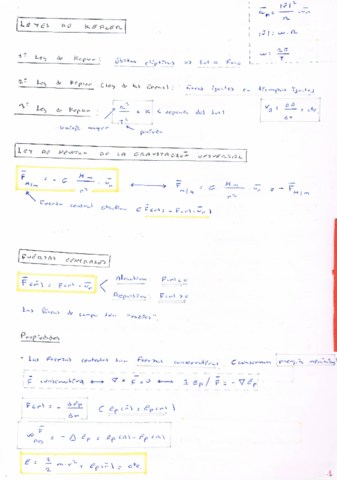 LEYES DE KEPLER
1ª Ley de Kepler: órbitas elípticas con Sol en foco
2ª Ley de Kepler (Ley de las Áreas): Áreas iguales en tiempos iguales
3ª Ley de Kepler: a³/T² = k (depende del Sol)
|v̄| = ω · R
ω = 2π/T
semieje mayor
periodo
LEY DE NEWTON DE LA GRAVITACIÓN UNIVERSAL
F̄ M/m = - G Mm/r² · ūr ⟷ F̄ m/M = G Mm/r² · ūr = - F̄ M/m
Fuerza central
FUERZAS CENTRALES
F̄(r̄) = F(r) · ūr
Atractiva: F(r) < 0
Repulsiva: F(r) > 0
Las líneas de campo son "radios".
Propiedades
· Las fuerzas centrales son fuerzas conservativas (conservan energía mecánica)
F̄ conservativa ⟷ ∇ × F̄ = 0 ⟷ ∃ Ep / F̄ = - ∇Ep
(Ep(r̄) = Ep(r))
= - Δ Ep = Ep(A) - Ep(B)
E = 1/2 m · v² + Ep(r) = cte.
1